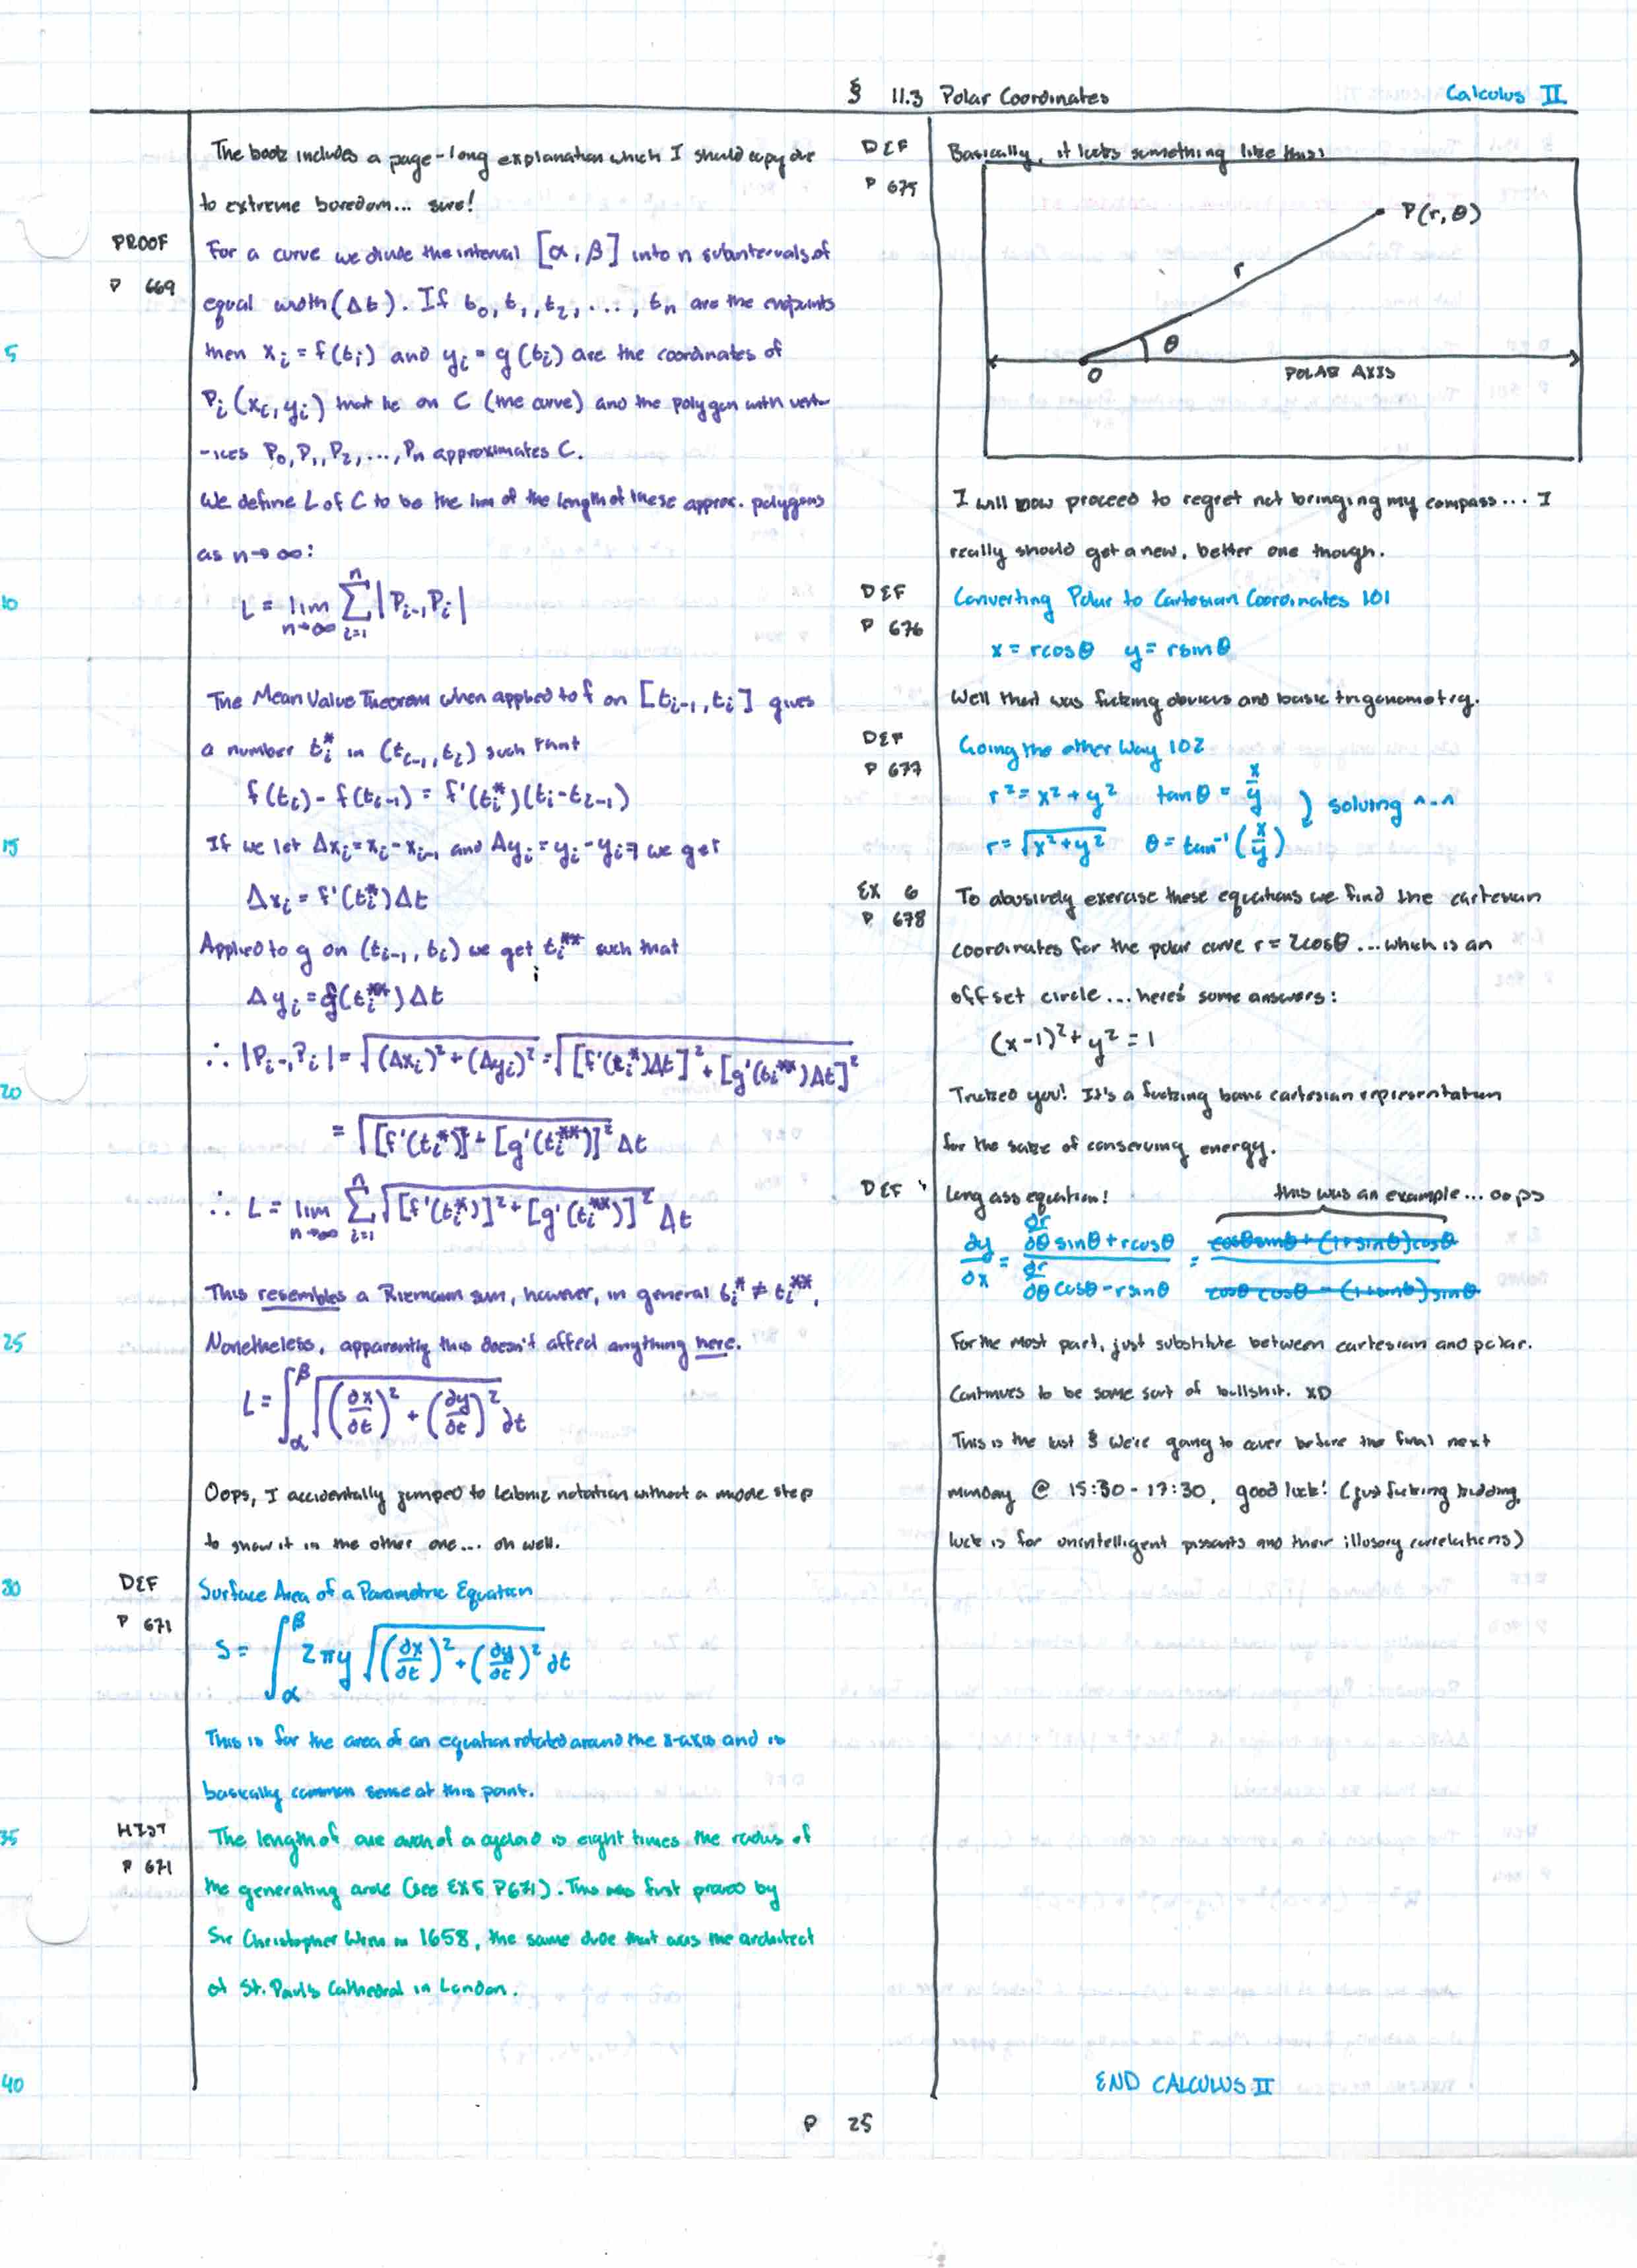 § 11.3 Polar Coordinates
Calculus II
The book includes a page-long explanation which I should copy due
to extreme boredom... sure!
PROOF
P 669
For a curve we divide the interval [α, β] into n subintervals of
equal width (Δt). If t₀, t₁, t₂, ..., tₙ are the endpoints
5
then xᵢ = f(tᵢ) and yᵢ = g(tᵢ) are the coordinates of
Pᵢ(xᵢ, yᵢ) that lie on C (the curve) and the polygon with vert-
-ices P₀, P₁, P₂, ..., Pₙ approximates C.
We define L of C to be the lim of the length of these approx. polygons
as n→∞:
10
L = lim n→∞ Σ i=1 n |Pᵢ₋₁Pᵢ|
The Mean Value Theorem when applied to f on [tᵢ₋₁, tᵢ] gives
a number tᵢ* in (tᵢ₋₁, tᵢ) such that
f(tᵢ) - f(tᵢ₋₁) = f'(tᵢ*)(tᵢ - tᵢ₋₁)
15
If we let Δxᵢ = xᵢ - xᵢ₋₁ and Δyᵢ = yᵢ - yᵢ₋₁ we get
Δxᵢ = f'(tᵢ*)Δt
Applied to g on (tᵢ₋₁, tᵢ) we get tᵢ** such that
Δyᵢ = g'(tᵢ**)Δt
∴ |Pᵢ₋₁Pᵢ| = √((Δxᵢ)² + (Δyᵢ)²) = √([f'(tᵢ*)Δt]² + [g'(tᵢ**)Δt]²)
20
= √([f'(tᵢ*)]² + [g'(tᵢ**)]²) Δt
∴ L = lim n→∞ Σ i=1 n √([f'(tᵢ*)]² + [g'(tᵢ**)]²) Δt
This resembles a Riemann sum, however, in general tᵢ* ≠ tᵢ**.
25
Nonetheless, apparently this doesn't affect anything here.
L = ∫ α β √((∂x/∂t)² + (∂y/∂t)²) ∂t
Oops, I accidentally jumped to Leibniz notation without a middle step
to show it in the other one... oh well.
30
DEF
P 671
Surface Area of a Parametric Equation
S = ∫ α β 2πy √((∂x/∂t)² + (∂y/∂t)²) ∂t
This is for the area of an equation rotated around the x-axis and is
basically common sense at this point.
35
HIST
P 671
The length of one arch of a cycloid is eight times the radius of
the generating circle (see EX 5 P671). This was first proved by
Sir Christopher Wren in 1658, the same dude that was the architect
of St. Paul's Cathedral in London.
40
DEF
P 675
Basically, it looks something like this:
P(r, θ)
r
θ
O
POLAR AXIS
I will now proceed to regret not bringing my compass... I
really should get a new, better one though.
DEF
P 676
Converting Polar to Cartesian Coordinates 101
x = rcosθ y = rsinθ
Well that was fucking obvious and basic trigonometry.
DEF
P 677
Going the other Way 102
r² = x² + y² tanθ = x/y
) solving ^-^
r = √(x² + y²) θ = tan⁻¹(x/y)
EX 6
P 678
To abusively exercise these equations we find the cartesian
coordinates for the polar curve r = 2cosθ ... which is an
offset circle... here's some answers:
(x-1)² + y² = 1
Tricked you! It's a fucking bare cartesian representation
for the sake of conserving energy.
DEF
Long ass equation!
this was an example... oops
∂y/∂x = (∂r/∂θ sinθ + rcosθ)/(∂r/∂θ cosθ - rsinθ) = (cosθsinθ + (1+sinθ)cosθ)/(cosθcosθ - (1+sinθ)sinθ)
For the most part, just substitute between cartesian and polar.
Continues to be some sort of bullshit. XD
This is the last § we're going to cover before the final next
monday @ 15:30-17:30, good luck! (just fucking kidding,
luck is for unintelligent pissants and their illusory correlations)
END CALCULUS II
P 25